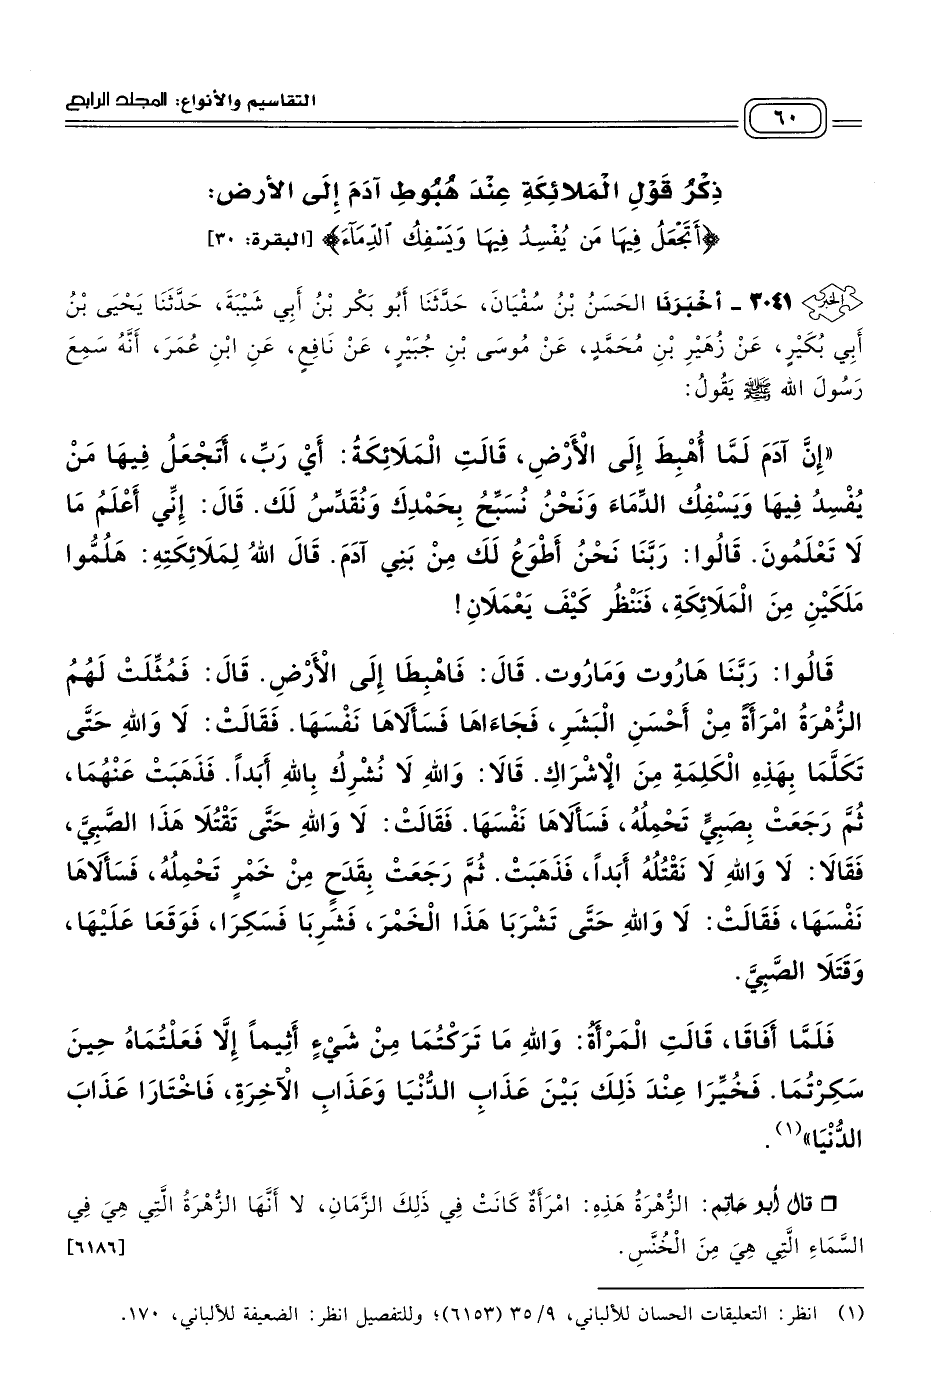 التقاسيم والأنواع: المجلد الرابع
٦٠
ذِكْرُ قَوْلِ الْمَلَائِكَةِ عِنْدَ هُبُوطِ آدَمَ إِلَى الأرض:
﴿أَتَجْعَلُ فِيهَا مَن يُفْسِدُ فِيهَا وَيَسْفِكُ ٱلدِّمَآءَ﴾ [البقرة: ٣٠]
٣٠٤١ - أَخْبَرَنَا الحَسَنُ بْنُ سُفْيَانَ، حَدَّثَنَا أَبُو بَكْرِ بْنُ أَبِي شَيْبَةَ، حَدَّثَنَا يَحْيَى بْنُ
أَبِي بُكَيْرٍ، عَنْ زُهَيْرِ بْنِ مُحَمَّدٍ، عَنْ مُوسَى بْنِ جُبَيْرٍ، عَنْ نَافِعٍ، عَنِ ابْنِ عُمَرَ، أَنَّهُ سَمِعَ
رَسُولَ الله ﷺ يَقُولُ:
«إِنَّ آدَمَ لَمَّا أُهْبِطَ إِلَى الْأَرْضِ، قَالَتِ الْمَلَائِكَةُ: أَيْ رَبِّ، أَتَجْعَلُ فِيهَا مَنْ
يُفْسِدُ فِيهَا وَيَسْفِكُ الدِّمَاءَ وَنَحْنُ نُسَبِّحُ بِحَمْدِكَ وَنُقَدِّسُ لَكَ. قَالَ: إِنِّي أَعْلَمُ مَا
لَا تَعْلَمُونَ. قَالُوا: رَبَّنَا نَحْنُ أَطْوَعُ لَكَ مِنْ بَنِي آدَمَ. قَالَ اللهُ لِمَلَائِكَتِهِ: هَلُمُّوا
مَلَكَيْنِ مِنَ الْمَلَائِكَةِ، فَنَنْظُر كَيْفَ يَعْمَلَانِ!
قَالُوا: رَبَّنَا هَارُوت وَمَارُوت. قَالَ: فَاهْبِطَا إِلَى الْأَرْضِ. قَالَ: فَمُثِّلَتْ لَهُمُ
الزُّهْرَةُ امْرَأَةً مِنْ أَحْسَنِ الْبَشَرِ، فَجَاءَاهَا فَسَأَلَاهَا نَفْسَهَا. فَقَالَتْ: لَا وَاللهِ حَتَّى
تَكَلَّمَا بِهَذِهِ الْكَلِمَةِ مِنَ الْإِشْرَاكِ. قَالَا: وَاللهِ لَا نُشْرِكُ بِاللهِ أَبَداً. فَذَهَبَتْ عَنْهُمَا،
ثُمَّ رَجَعَتْ بِصَبِيٍّ تَحْمِلُهُ، فَسَأَلَاهَا نَفْسَهَا. فَقَالَتْ: لَا وَاللهِ حَتَّى تَقْتُلَا هَذَا الصَّبِيَّ،
فَقَالَا: لَا وَاللهِ لَا نَقْتُلُهُ أَبَداً، فَذَهَبَتْ. ثُمَّ رَجَعَتْ بِقَدَحٍ مِنْ خَمْرٍ تَحْمِلُهُ، فَسَأَلَاهَا
نَفْسَهَا، فَقَالَتْ: لَا وَاللهِ حَتَّى تَشْرَبَا هَذَا الْخَمْرَ، فَشَرِبَا فَسَكِرَا، فَوَقَعَا عَلَيْهَا،
وَقَتَلَا الصَّبِيَّ.
فَلَمَّا أَفَاقَا، قَالَتِ الْمَرْأَةُ: وَاللهِ مَا تَرَكْتُمَا مِنْ شَيْءٍ أَثِيماً إِلَّا فَعَلْتُمَاهُ حِينَ
سَكِرْتُمَا. فَخُيِّرَا عِنْدَ ذَلِكَ بَيْنَ عَذَابِ الدُّنْيَا وَعَذَابِ الْآخِرَةِ، فَاخْتَارَا عَذَابَ
الدُّنْيَا»(١).
❑ قال أَبو حَاتِم: الزُّهْرَةُ هَذِهِ: امْرَأَةٌ كَانَتْ فِي ذَلِكَ الزَّمَانِ، لَا أَنَّهَا الزُّهْرَةُ الَّتِي هِيَ فِي
السَّمَاءِ الَّتِي هِيَ مِنَ الْخُنَّسِ. [٦١٨٦]
(١) انظر: التعليقات الحسان للألباني، ٩/ ٣٥ (٦١٥٣)؛ وللتفصيل انظر: الضعيفة للألباني، ١٧٠.